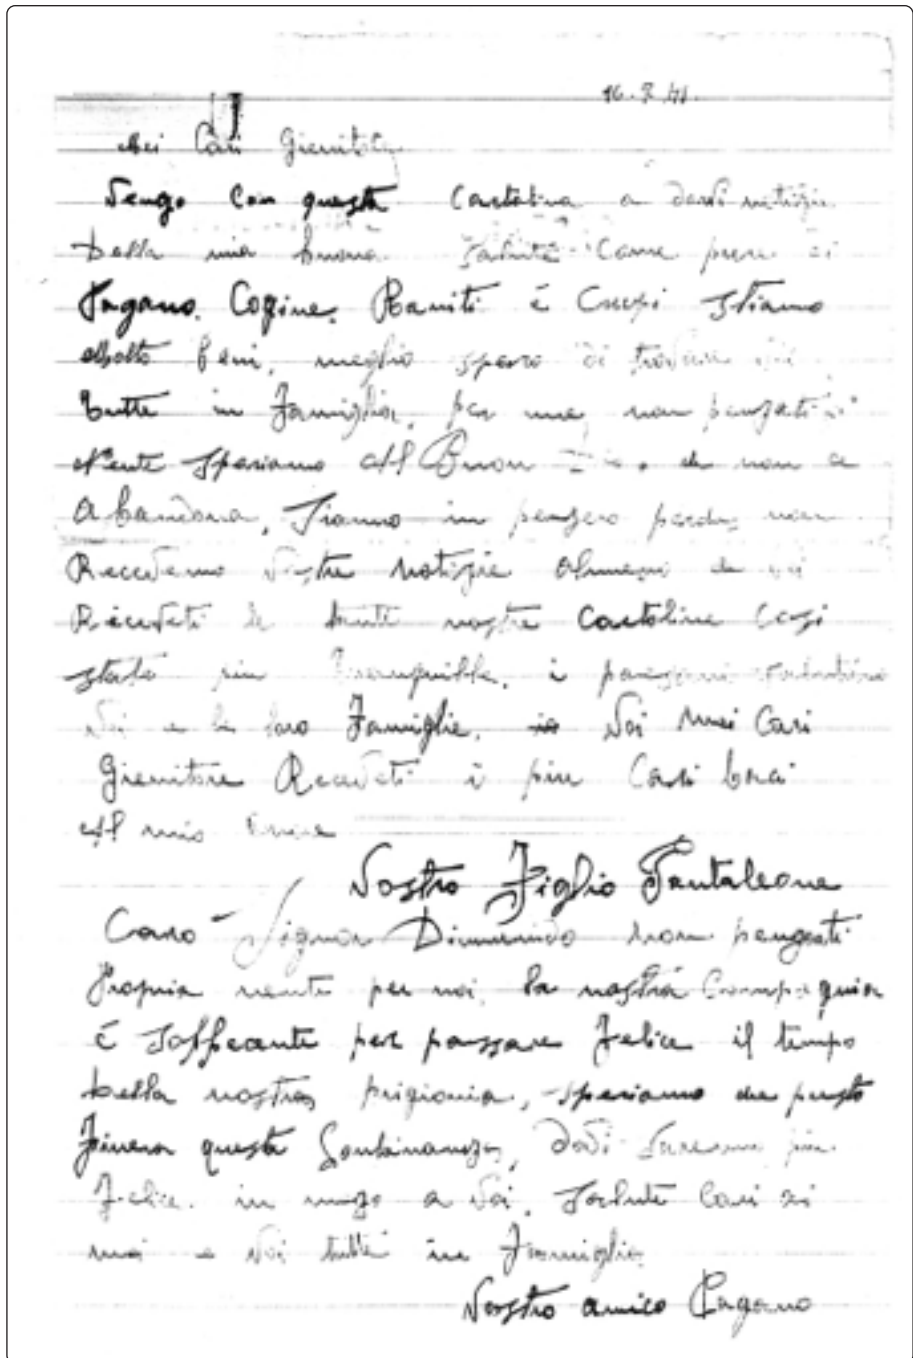 Mei Cari Gienitore
Vengo Con questa Cartolina a darvi notizie
Della mia buona Salute Come pure di
Pagano, Cogine, Raniti é Crupi Stiamo
Molto beni, meglio spero di trovare
Tutte in Famiglia, per me non penzati
Niente Speriamo Al Buon Dio, che non ce
Abandona, Siamo in penzero perche non
Recevemo Vostre Notizie almeno che voi
Réceveti le tante nostre Cartoline Cozi
state piu tranquille, i paezani salutino
Voi e le loro Famiglie, Voi Miei Cari
Gienitore Recevéti i piu Cari baci
Al mio
Vostro Figlio Pantaleone
Caro Signor Dimenico non pengati
Propria nente per noi, la nostra Compagnia
É Soffecante per passare Felice il tempo
Della nostra prigionia, speriamo che presto
Finera questa Lontananza, Dovi Saremo piu
Felice in mezo a Voi, Salute Cari di
noi e Voi tutti in Famiglia
Vostro amico Pagano